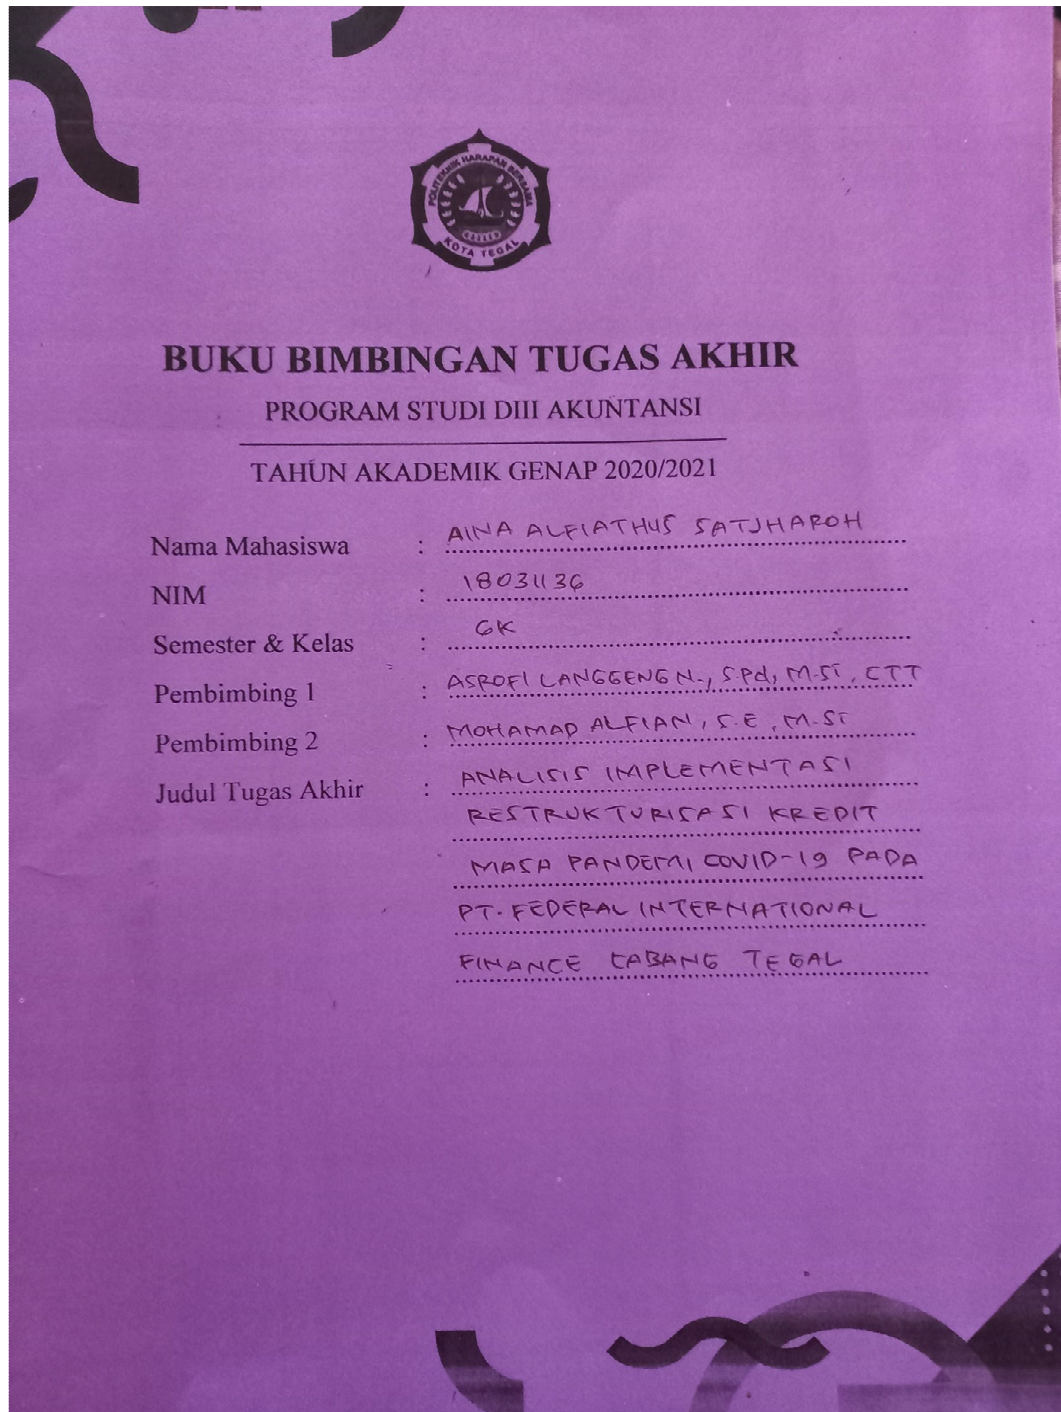 POLITEKNIK HARAPAN BERSAMA
KOTA TEGAL
BUKU BIMBINGAN TUGAS AKHIR
PROGRAM STUDI DIII AKUNTANSI
TAHUN AKADEMIK GENAP 2020/2021
Nama Mahasiswa : AINA ALFIATHUS SATJHAROH
NIM : 18031136
Semester & Kelas : 6K
Pembimbing 1 : ASROFI LANGGENG N., S.Pd, M.Si, CTT
Pembimbing 2 : MOHAMAD ALFIAN, S.E, M.Si
Judul Tugas Akhir : ANALISIS IMPLEMENTASI
RESTRUKTURISASI KREDIT
MASA PANDEMI COVID-19 PADA
PT. FEDERAL INTERNATIONAL
FINANCE CABANG TEGAL